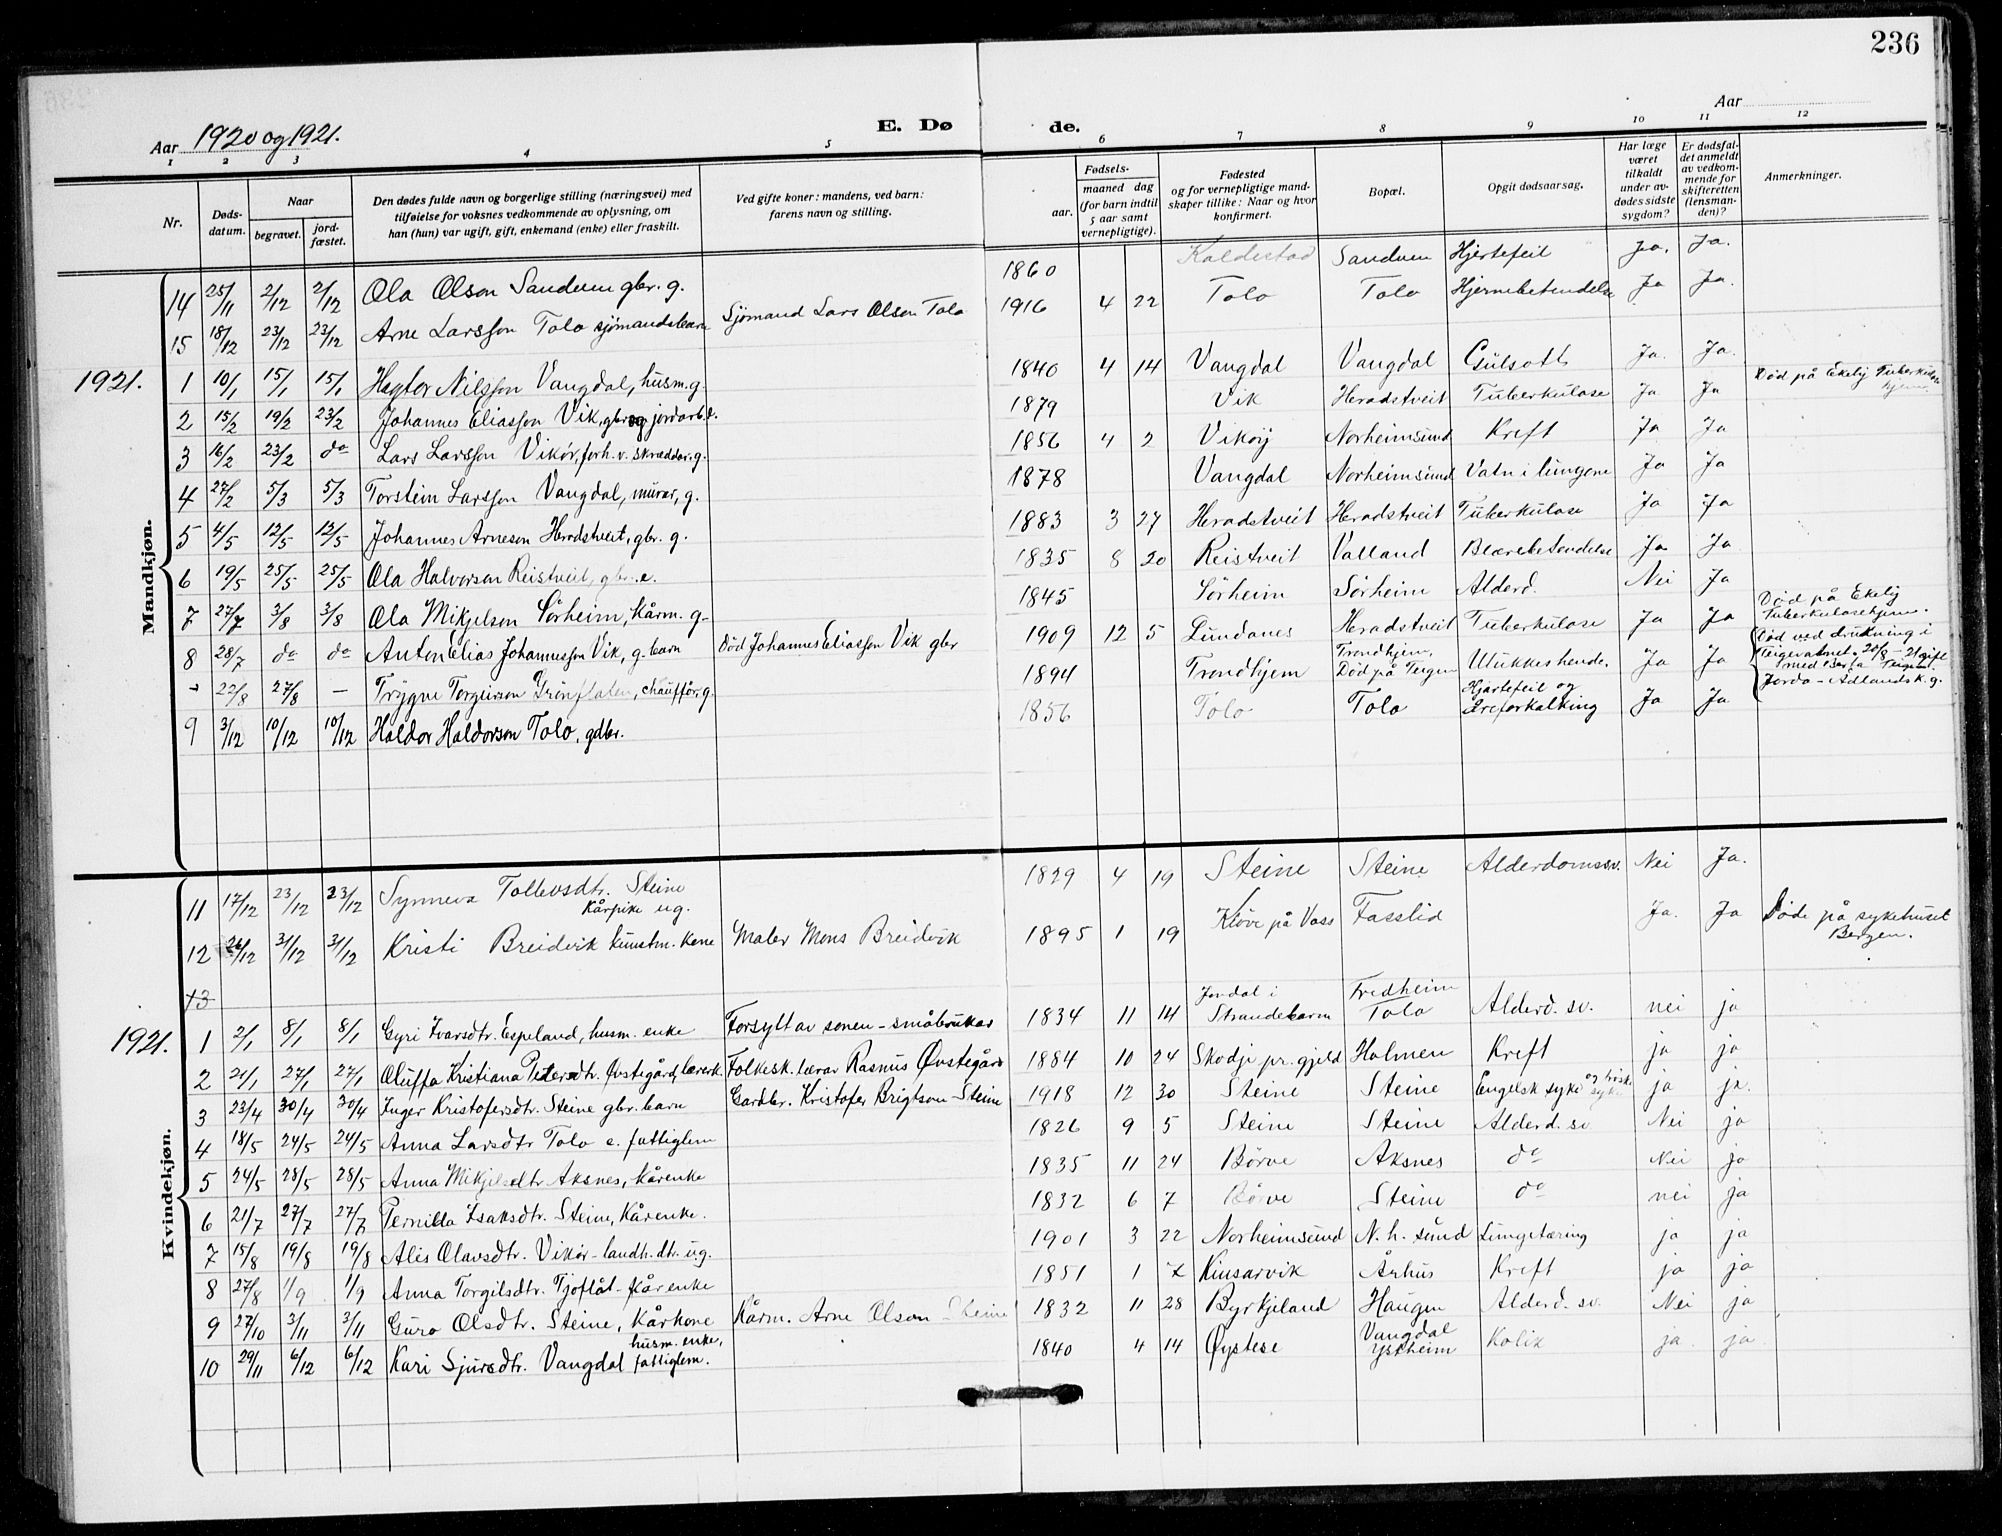 236
Aar 1920 og 1921.
E. Døde.
Aar
1 2 3 4 5 6 7 8 9 10 11 12
Nr.
Døds-datum.
Naar
begravet.
jord-fæstet.
Den dødes fulde navn og borgerlige stilling (næringsvei) med
tilføielse for voksnes vedkommende av oplysning, om
han (hun) var ugift, gift, enkemand (enke) eller fraskilt.
Ved gifte koner: mandens, ved barn:
farens navn og stilling.
aar.
Fødsels-
maaned dag
(for barn indtil
5 aar samt
vernepligtige).
Fødested
og for vernepligtige mand-
skaper tillike: Naar og hvor
konfirmert.
Bopæl.
Opgit dødsaarsag.
Har læge
været
tilkaldt
under av-
dødes sidste
sygdom?
Er dødsfal-
det anmeldt
av vedkom-
mende for
skifteretten
(lensman-
den)?
Anmerkninger.
Mandkjøn.
14 25/11 2/12 2/12 Ola Olson Sandven gbr. g. 1860 Kaldestad Sandven Hjertefeil Ja. Ja.
15 18/12 23/12 23/12 Arne Larsson Tolo sjømandsbarn Sjömand Lars Olson Tolo 1916 4 22 Tolo Tolo Hjernebetendelse Ja Ja.
1921.
1 10/1 15/1 15/1 Hagtor Nilsson Vangdal, husm. g. 1840 4 14 Vangdal Vangdal Gulsott Ja. Ja.
2 15/2 19/2 23/2 Johannes Eliasson Vik, gbr. og jordarb. 1879 Vik Heradstveit Tuberkulose Ja Ja Død på Ekelij Tuberkulose hjem.
3 16/2 23/2 do Lars Larsson Vikør, forh. v. skrædder. g. 1856 4 2 Vikøy Norheimsund Kreft Ja Ja
4 27/2 5/3 5/3 Torstein Larsson Vangdal, murar, g. 1878 Vangdal Norheimsund Vatn i lungene Ja Ja
5 4/5 12/5 12/5 Johannes Arneson Heradstveit, gbr. g. 1883 3 27 Heradstveit Heradstveit Tuberkulose Ja Ja
6 19/5 25/5 25/5 Ola Halvorson Reistveit, gbr. e. 1835 8 20 Reistveit Valland Blærebetendelse Ja Ja
7 27/7 3/8 3/8 Ola Mikjelson Sørheim, Kårm. g. 1845 Sørheim Sørheim Alderd. Nei Ja
8 28/7 do do Anton Elias Johannesson Vik, g. barn Død Johannes Eliasson Vik gbr 1909 12 5 Lundanes Heradstveit Tuberkulose Ja Ja Død på Ekelij Tuberkulosehjem.
- 22/8 27/8 – Trygve Torgeirson Grønflaten, chauffør, g. 1894 Trondhjem Trondhjem, Død på Teigen Ulukkeshende. Ja Ja Død ved drukning i Teigevatnet 20/8 - 21 gift med Berta Teigen. Jorda – Adlandsk. g.
9 3/12 10/12 10/12 Haldor Haldorson Tolo, gdbr. 1856 Tolo Tolo Hjartefeil og Åreforkalking Ja Ja
Kvindekjøn.
11 17/12 23/12 23/12 Synneva Tollevsdtr. Steine Kårpike ug. 1829 4 19 Steine Steine Alderdomssv. Nei Ja.
12 26/12 31/12 31/12 Kristi Breidvik kunstm. kone Maler Mons Breidvik 1895 1 19 Kløve på Voss Fosslid Ja. Ja Døde på sykehuset Bergen.
13
1921.
1 2/1 8/1 8/1 Gyri Ivarsdtr. Espeland, husm. enke Forsytt av sonen – småbrukar 1834 11 14 Jordal i Strandebarm Fredheim Tolo Alderd. sv. nei ja
2 21/1 27/1 27/1 Oluffa Kristiana Petersdtr. Øvstegård, lærerk. Folkesk. lærar Rasmus Øvstegård 1884 10 24 Skodje pr. gjeld Holmen Kreft ja ja
3 23/4 30/4 30/4 Inger Kristofersdtr. Steine gbr. barn Gardbr. Kristofer Brigtson Steine 1918 12 30 Steine Steine Engelsk syke og syke ja ja.
4 18/5 24/5 24/5 Anna Larsdtr Tolo e. fattiglem 1826 9 5 Steine Steine Alderd. sv Nei ja
5 24/5 28/5 28/5 Anna Mikjelsdtr Aksnes, Kårenke 1835 11 24 Børve Aksnes do Nei ja
6 21/7 27/7 27/7 Pernilla Isaksdtr. Steine, Kårenke. 1832 6 7 Børve Steine do nei ja
7 15/8 19/8 19/8 Alis Olavsdtr. Vikør – landh. dtr. ug. 1901 3 22 Norheimsund N. h. sund Lungetæring ja ja
8 27/8 1/9 1/9 Anna Torgilsdtr. Tjoflåt – Kårenke 1851 1 7 Kinsarvik Århus Kreft ja ja
9 27/10 3/11 3/11 Guro Olsdtr. Steine, Kårkone Kårm. Arne Olson Steine 1832 11 28 Byrkjeland Haugen Alderd. sv. Nei ja
10 29/11 6/12 6/12 Kari Sjursdtr. Vangdal husm. enke, fattiglem. 1840 4 14 Øystese Vangdal Ystheim Kolik ja. ja.